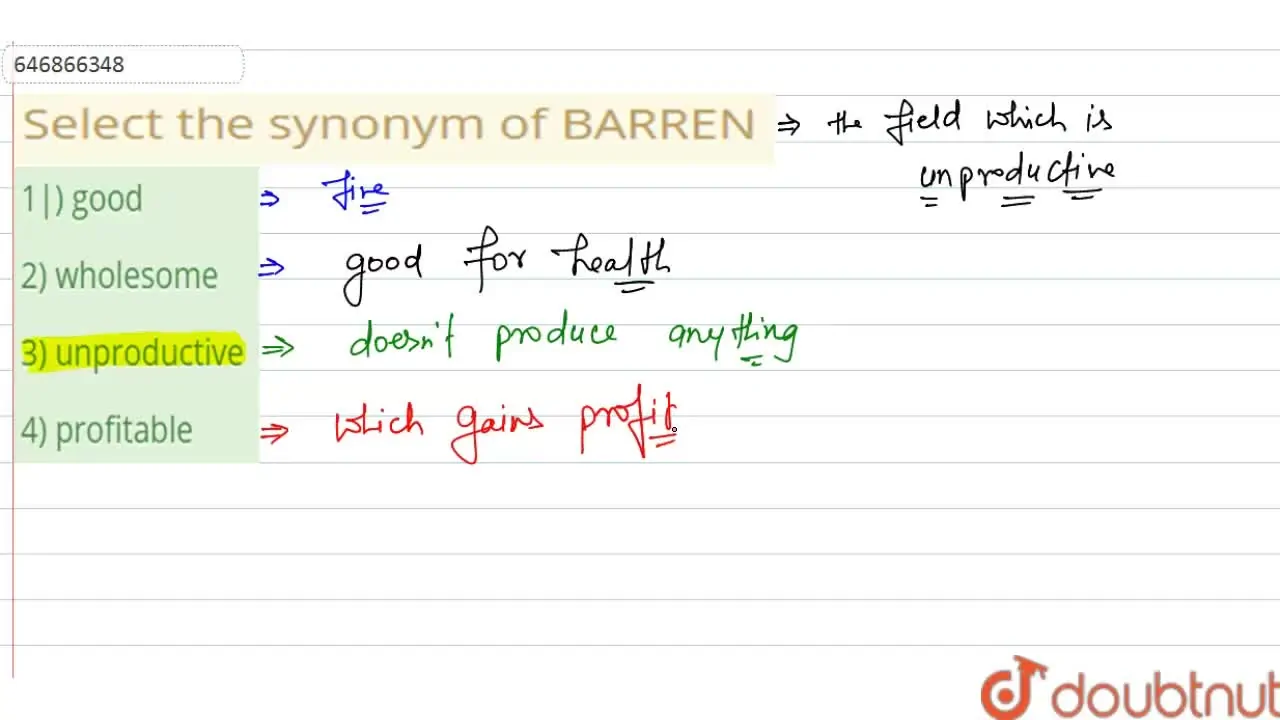 646866348
Select the synonym of BARREN ⇒ the field which is
unproductive
1|) good ⇒ fine
2) wholesome ⇒ good for health
3) unproductive ⇒ doesn't produce anything
4) profitable ⇒ which gains profit
doubtnut